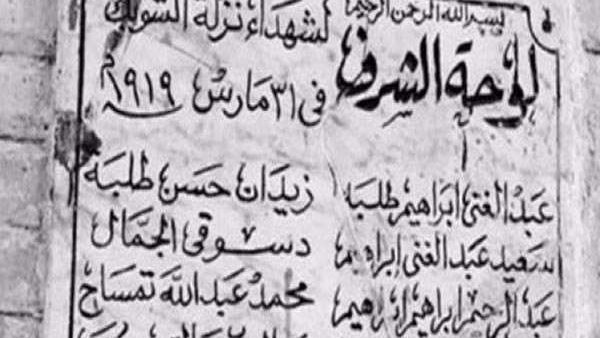 بسم الله الرحمن الرحيم
لوحة الشرف
لشهداء نزلة الشوبك
فى ٣١ مارس ١٩١٩م
عبد الغنى ابراهيم طلبه
زيدان حسن طلبه
سعيد عبد الغنى ابراهيم
دسوقى الجمال
عبد الرحيم ابراهيم ابراهيم
محمد عبد الله تمساح